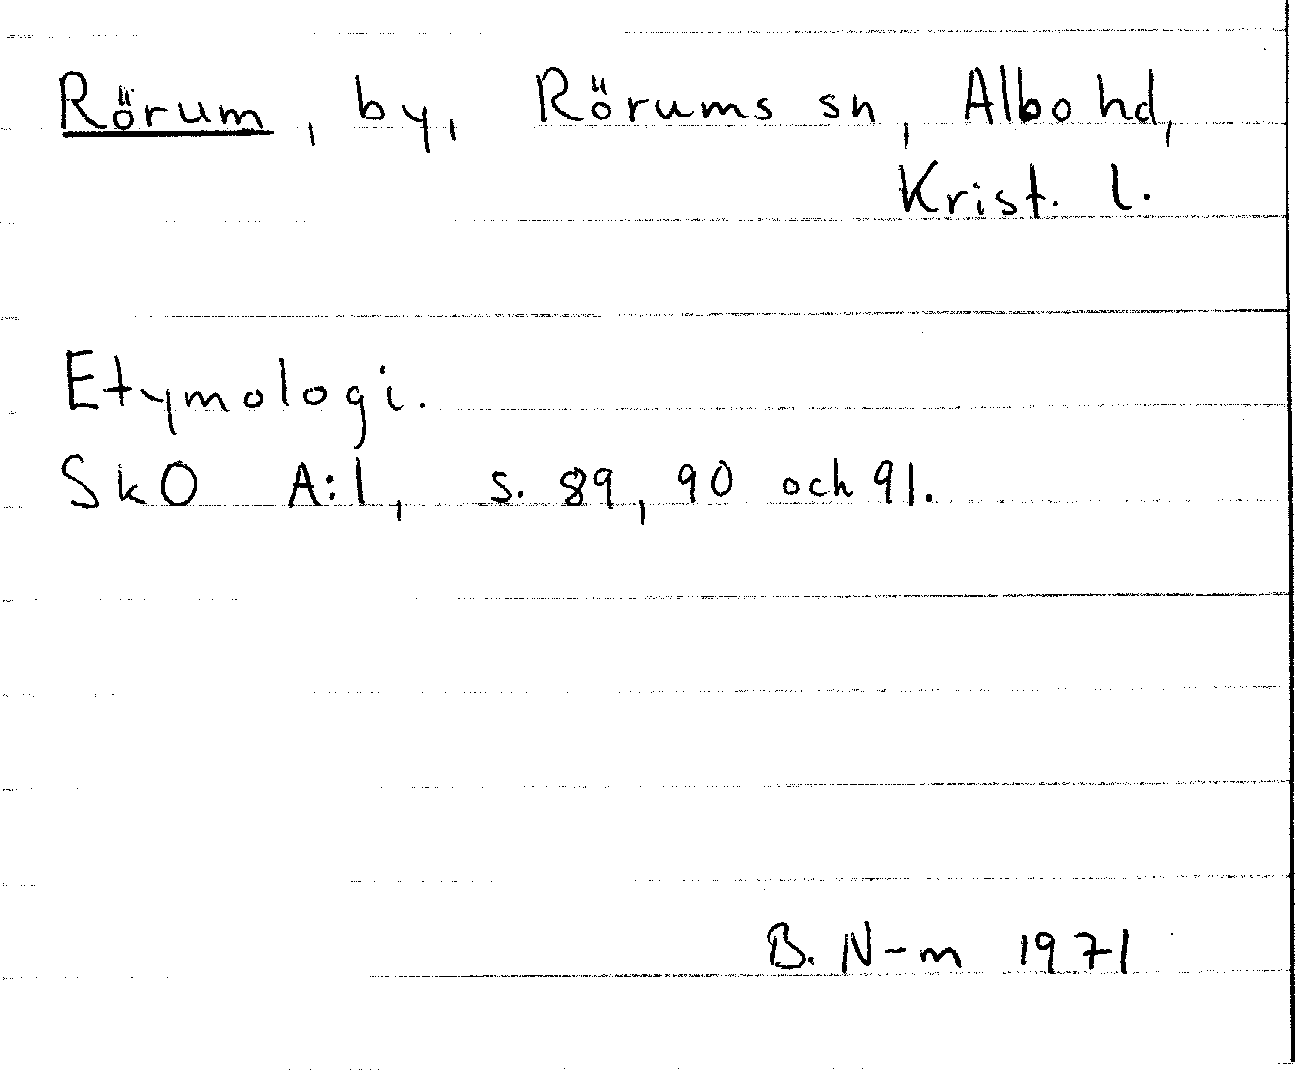 Rörum, by, Rörums sn, Albo hd,
Krist. l.
Etymologi.
SkO A:1, s. 89, 90 och 91.
B. N-m 1971